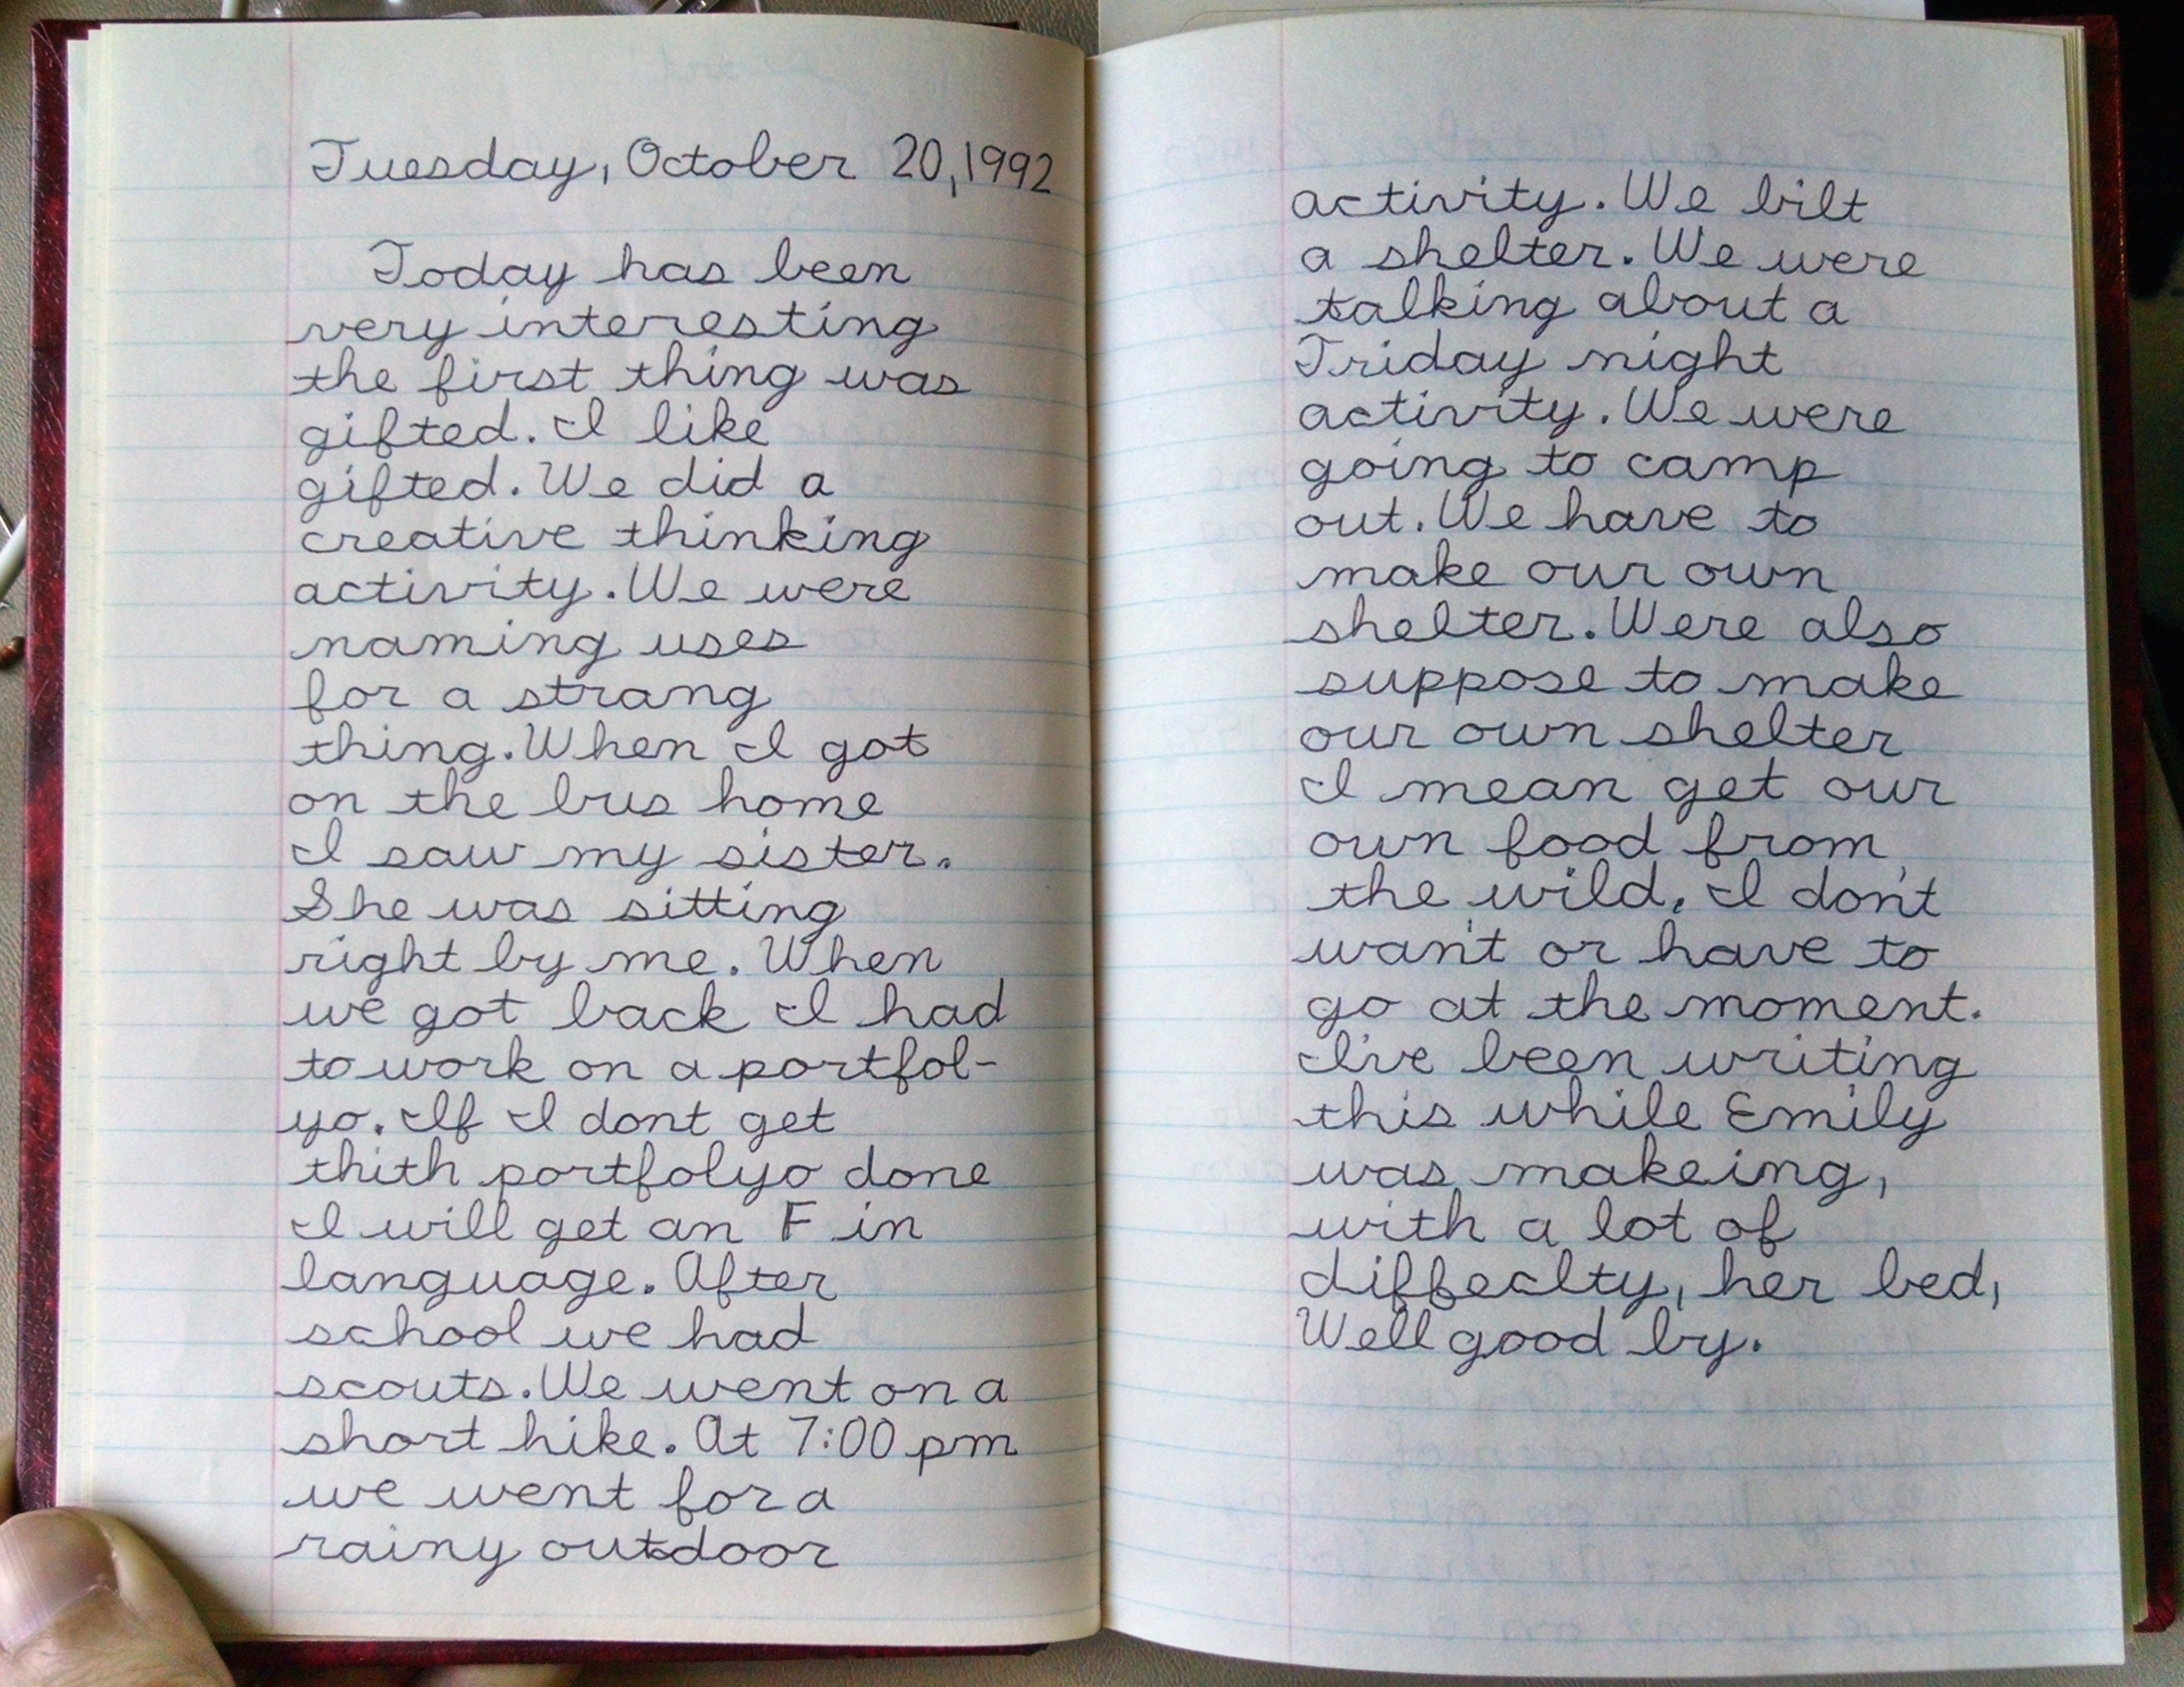 Tuesday, October 20, 1992
Today has been
very interesting
the first thing was
gifted. I like
gifted. We did a
creative thinking
activity. We were
naming uses
for a strang
thing. When I got
on the bus home
I saw my sister.
She was sitting
right by me. When
we got back I had
to work on a portfol-
yo. If I dont get
thith portfolyo done
I will get an F in
language. After
school we had
scouts. We went on a
short hike. At 7:00 pm
we went for a
rainy outdoor
activity. We bilt
a shelter. We were
talking about a
Friday night
activity. We were
going to camp
out. We have to
make our own
shelter. Were also
suppose to make
our own shelter
I mean get our
own food from
the wild. I don't
wan't or have to
go at the moment.
I've been writing
this while Emily
was makeing,
with a lot of
diffeclty, her bed,
Well good by.